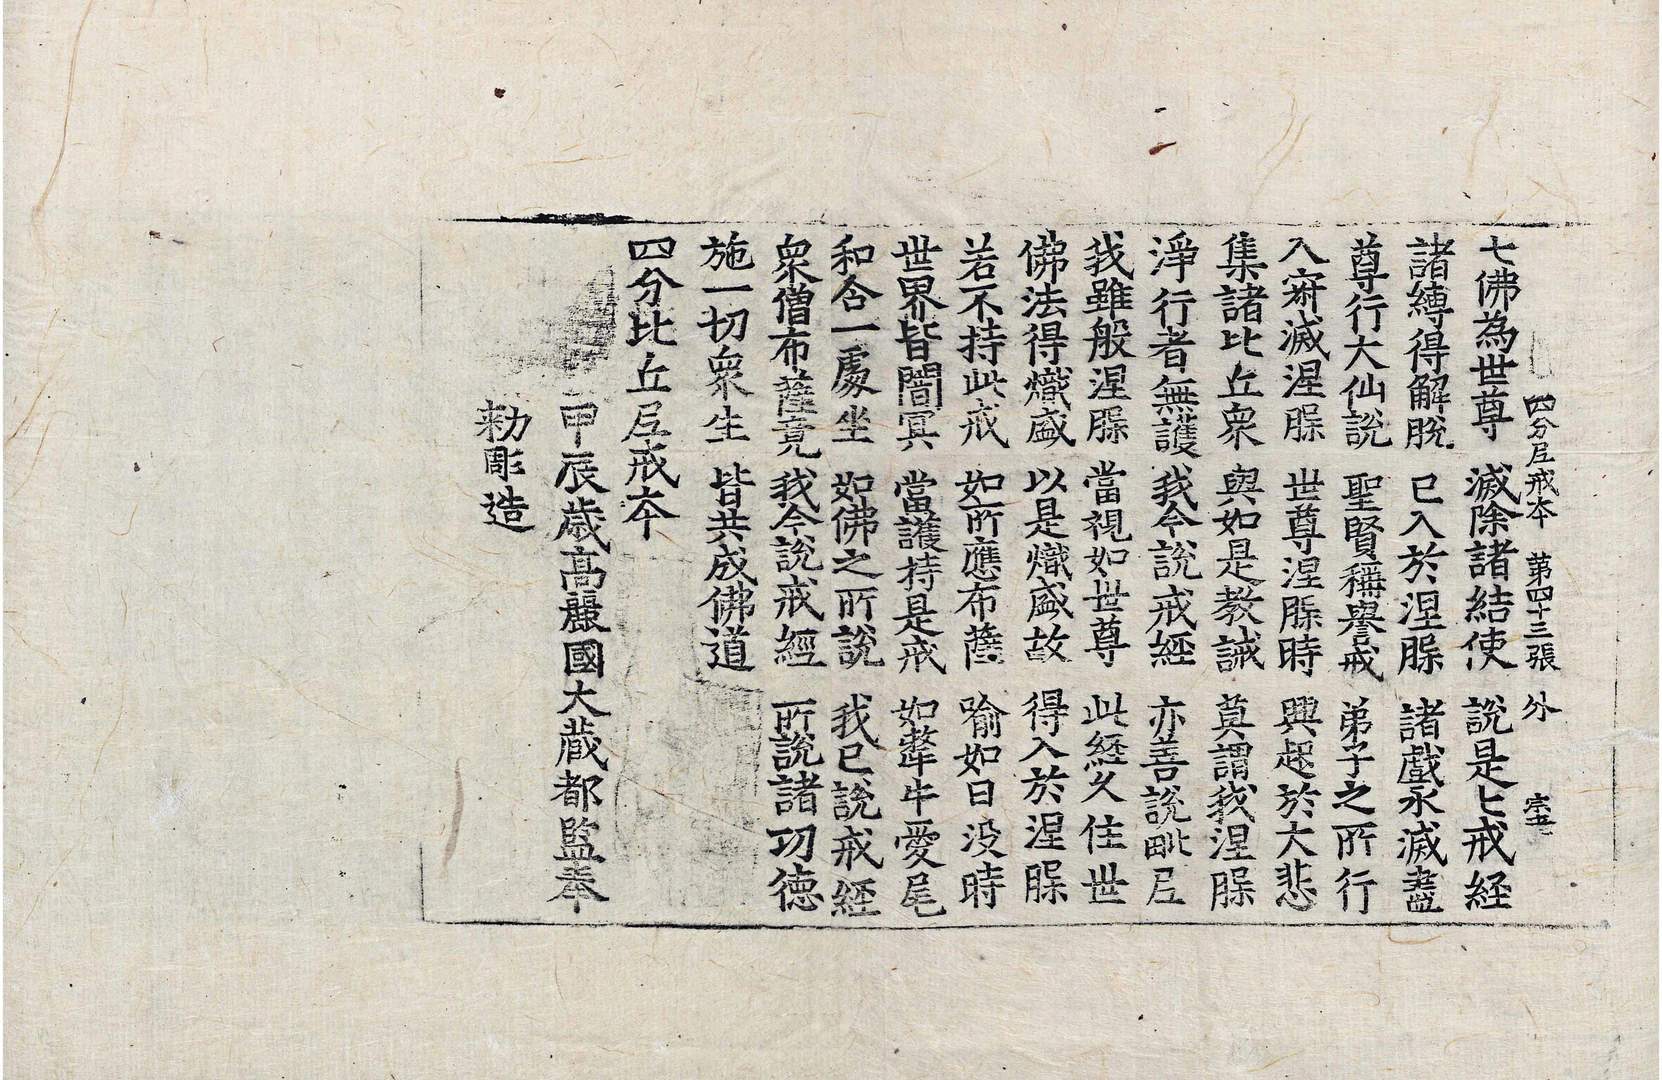 四分尼戒本 第四十三張 外 宗玄
七佛為世尊 滅除諸結使 說是七戒經
諸縛得解脫 已入於涅槃 諸戲永滅盡
尊行大仙說 聖賢稱譽戒 弟子之所行
入寂滅涅槃 世尊涅槃時 興起於大悲
集諸比丘衆 與如是教誡 莫謂我涅槃
淨行者無護 我今說戒經 亦善說毗尼
我雖般涅槃 當視如世尊 此經久住世
佛法得熾盛 以是熾盛故 得入於涅槃
若不持此戒 如所應布薩 喻如日没時
世界皆闇冥 當護持是戒 如犛牛愛尾
和合一處坐 如佛之所說 我已說戒經
衆僧布薩竟 我今說戒經 所說諸功德
施一切衆生 皆共成佛道
四分比丘尼戒本
甲辰歲高麗國大藏都監奉
勅彫造